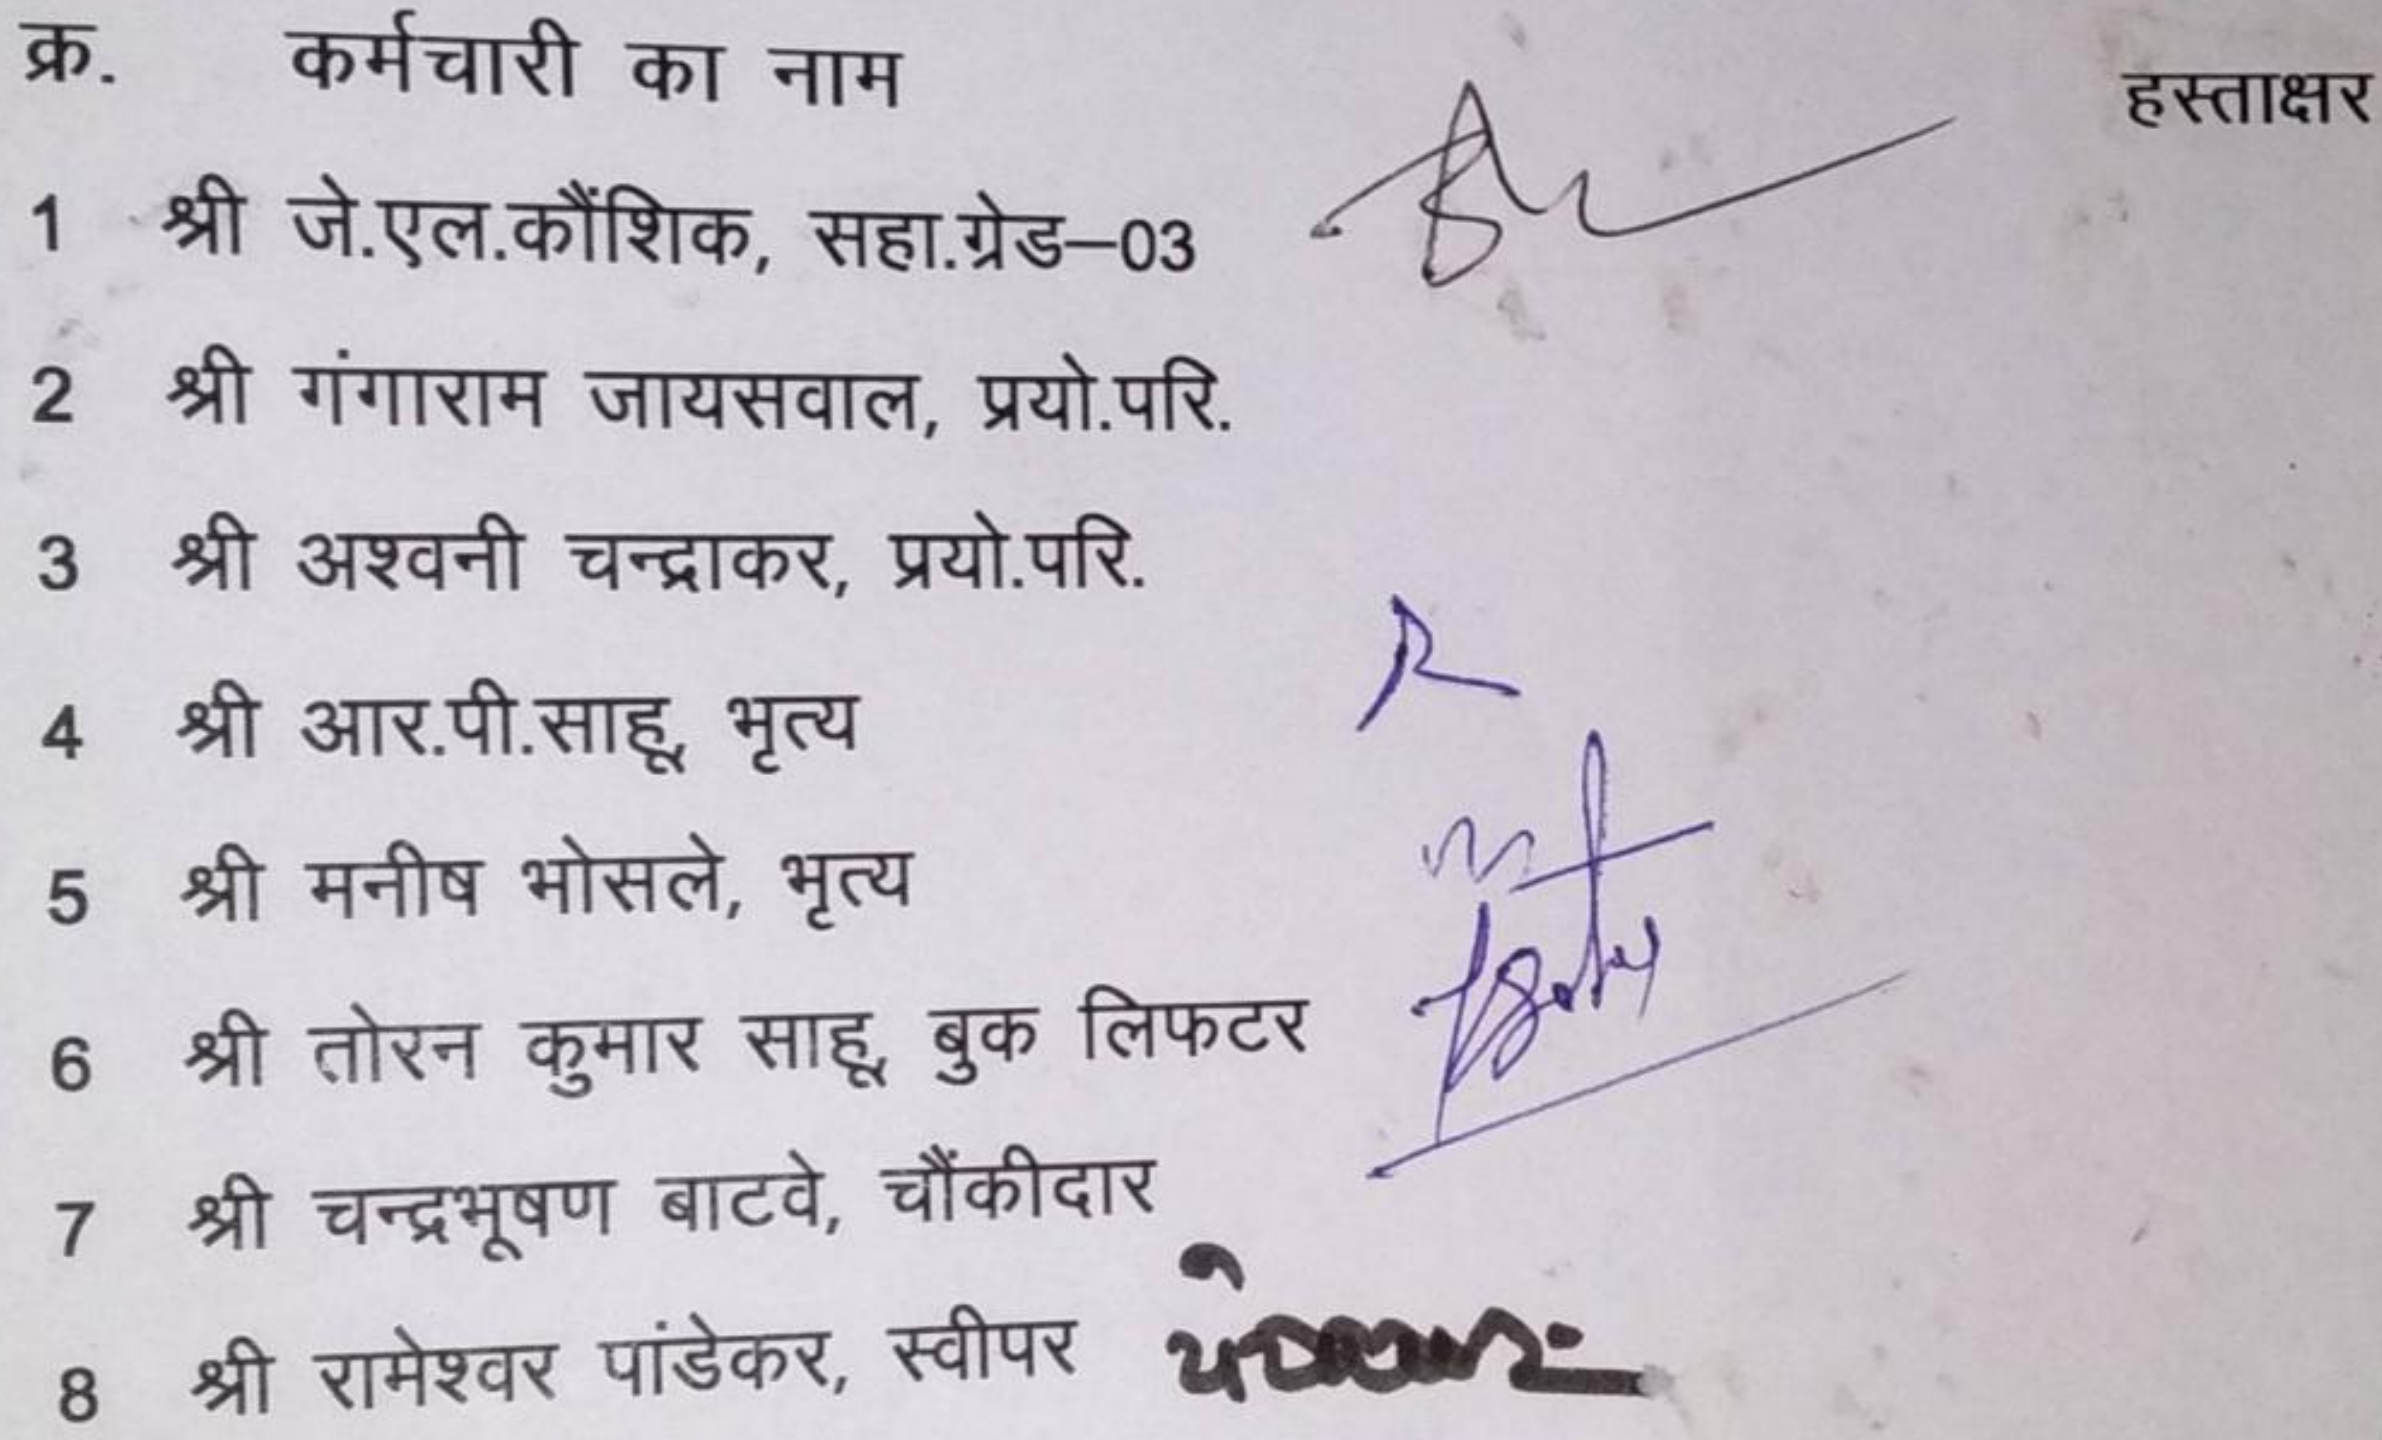 क्र. कर्मचारी का नाम हस्ताक्षर
1 श्री जे.एल.कौंशिक, सहा.ग्रेड–03
2 श्री गंगाराम जायसवाल, प्रयो.परि.
3 श्री अश्वनी चन्द्राकर, प्रयो.परि.
4 श्री आर.पी.साहू, भृत्य
5 श्री मनीष भोसले, भृत्य
6 श्री तोरन कुमार साहू, बुक लिफटर
7 श्री चन्द्रभूषण बाटवे, चौंकीदार
8 श्री रामेश्वर पांडेकर, स्वीपर